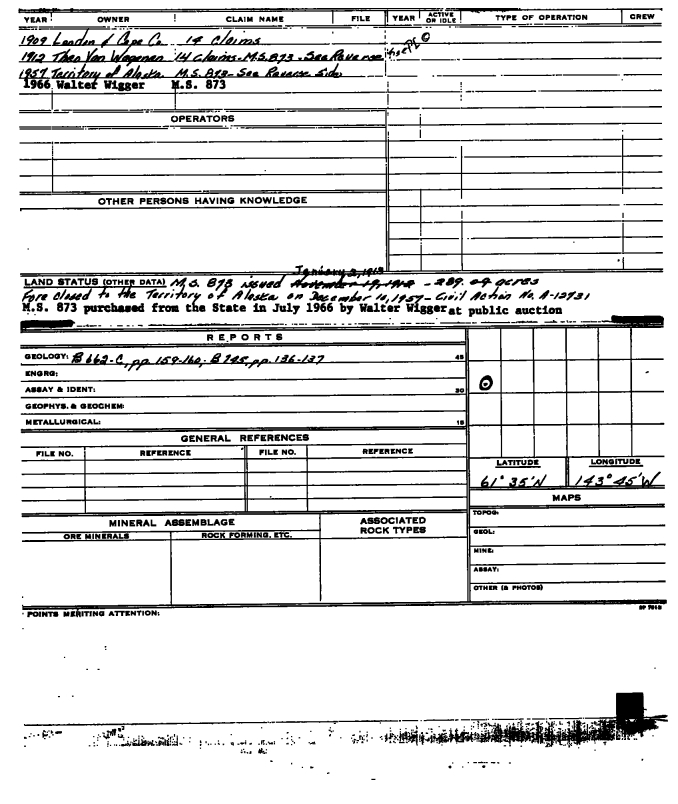 YEAR OWNER CLAIM NAME FILE YEAR ACTIVE OR IDLE TYPE OF OPERATION CREW
1909 London & Cape Co. 14 Claims
1912 Theo Van Wagenen 14 Claims-M.S. 873-See Reverse
1957 Territory of Alaska M.S. 873-See Reverse Side
1966 Walter Wigger M.S. 873
OPERATORS
OTHER PERSONS HAVING KNOWLEDGE
January 2, 1913
LAND STATUS (OTHER DATA) M.S. 873 issued November 19, 1912 - 289. acres
Foreclosed to the Territory of Alaska on December 10, 1957 - Civil Action No. A-12731
M.S. 873 purchased from the State in July 1966 by Walter Wigger at public auction
REPORTS
GEOLOGY: B 662-C, pp. 159-160; B 745, pp. 136-137 45
ENGRG:
ASSAY & IDENT: 30
GEOPHYS. & GEOCHEM:
METALLURGICAL: 15
GENERAL REFERENCES
FILE NO. REFERENCE FILE NO. REFERENCE
LATITUDE LONGITUDE
61° 35'N 143° 45'W
MAPS
TOPOG:
GEOL:
MINE:
ASSAY:
OTHER (& PHOTOS)
MINERAL ASSEMBLAGE
ORE MINERALS ROCK FORMING, ETC.
ASSOCIATED ROCK TYPES
POINTS MERITING ATTENTION: